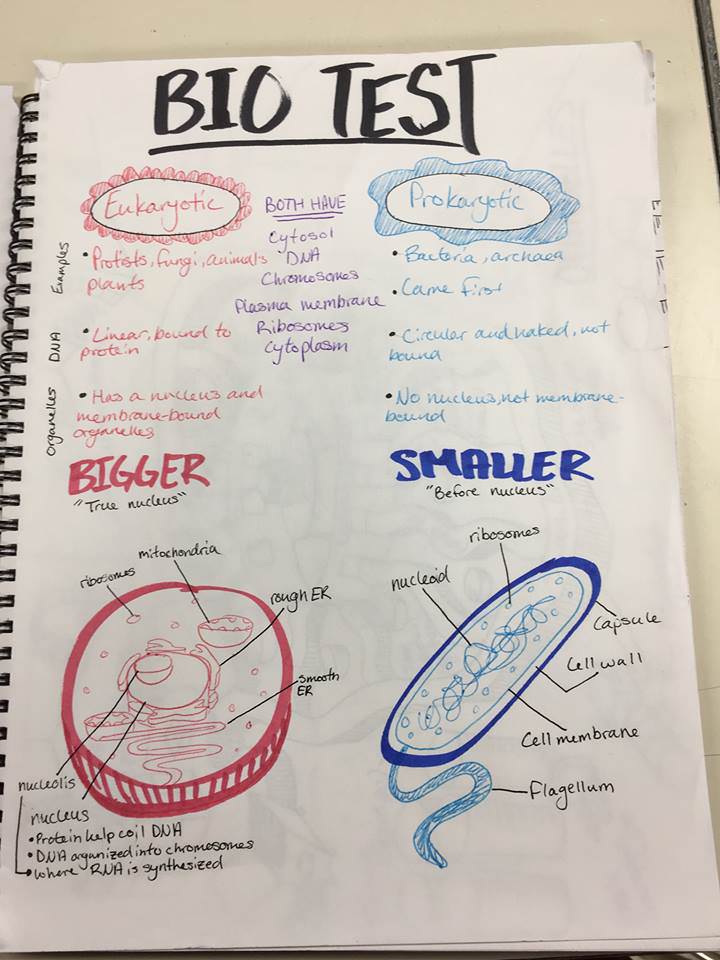 BIO TEST
Eukaryotic
BOTH HAVE
Prokaryotic
Examples
• Protists, fungi, animals
plants
Cytosol
DNA
Chromosomes
Plasma membrane
Ribosomes
Cytoplasm
• Bacteria, archaea
• Came first
DNA
• Linear, bound to
protein
• Circular and naked, not
bound
Organelles
• Has a nucleus and
membrane-bound
organelles
• No nucleus, not membrane-
bound
BIGGER
"True nucleus"
SMALLER
"Before nucleus"
mitochondria
ribosomes
rough ER
smooth
ER
nucleolis
nucleus
• Protein help coil DNA
• DNA organized into chromosomes
• Where RNA is synthesized
ribosomes
nucleoid
Capsule
Cell wall
Cell membrane
Flagellum